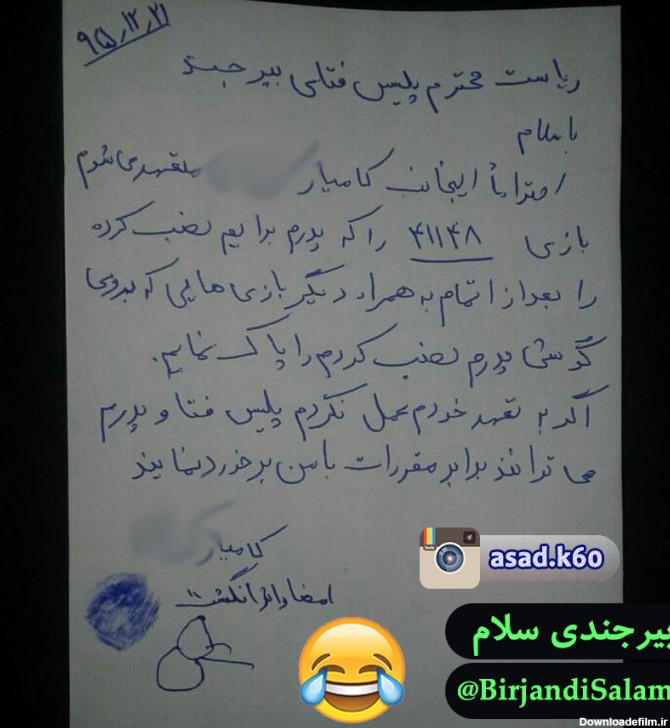 ۹۵/۱۲/۲۱
ریاست محترم پلیس فتای بیرجند
با سلام
احتراماً اینجانب کامیار متعهد می شوم
بازی ۴۱۱۴۸ را که پدرم برایم نصب کرده
را بعد از اتمام به همراه دیگر بازی هایی که بروی
گوشی پدرم نصب کردم را پاک نمایم.
اگر به تعهد خودم عمل نکردم پلیس فتا و پدرم
می توانند برابر مقررات با من برخورد نمایند
کامیار
امضا و اثر انگشت
asad.k60
بیرجندی سلام
@BirjandiSalam
Downloadefilm.ir